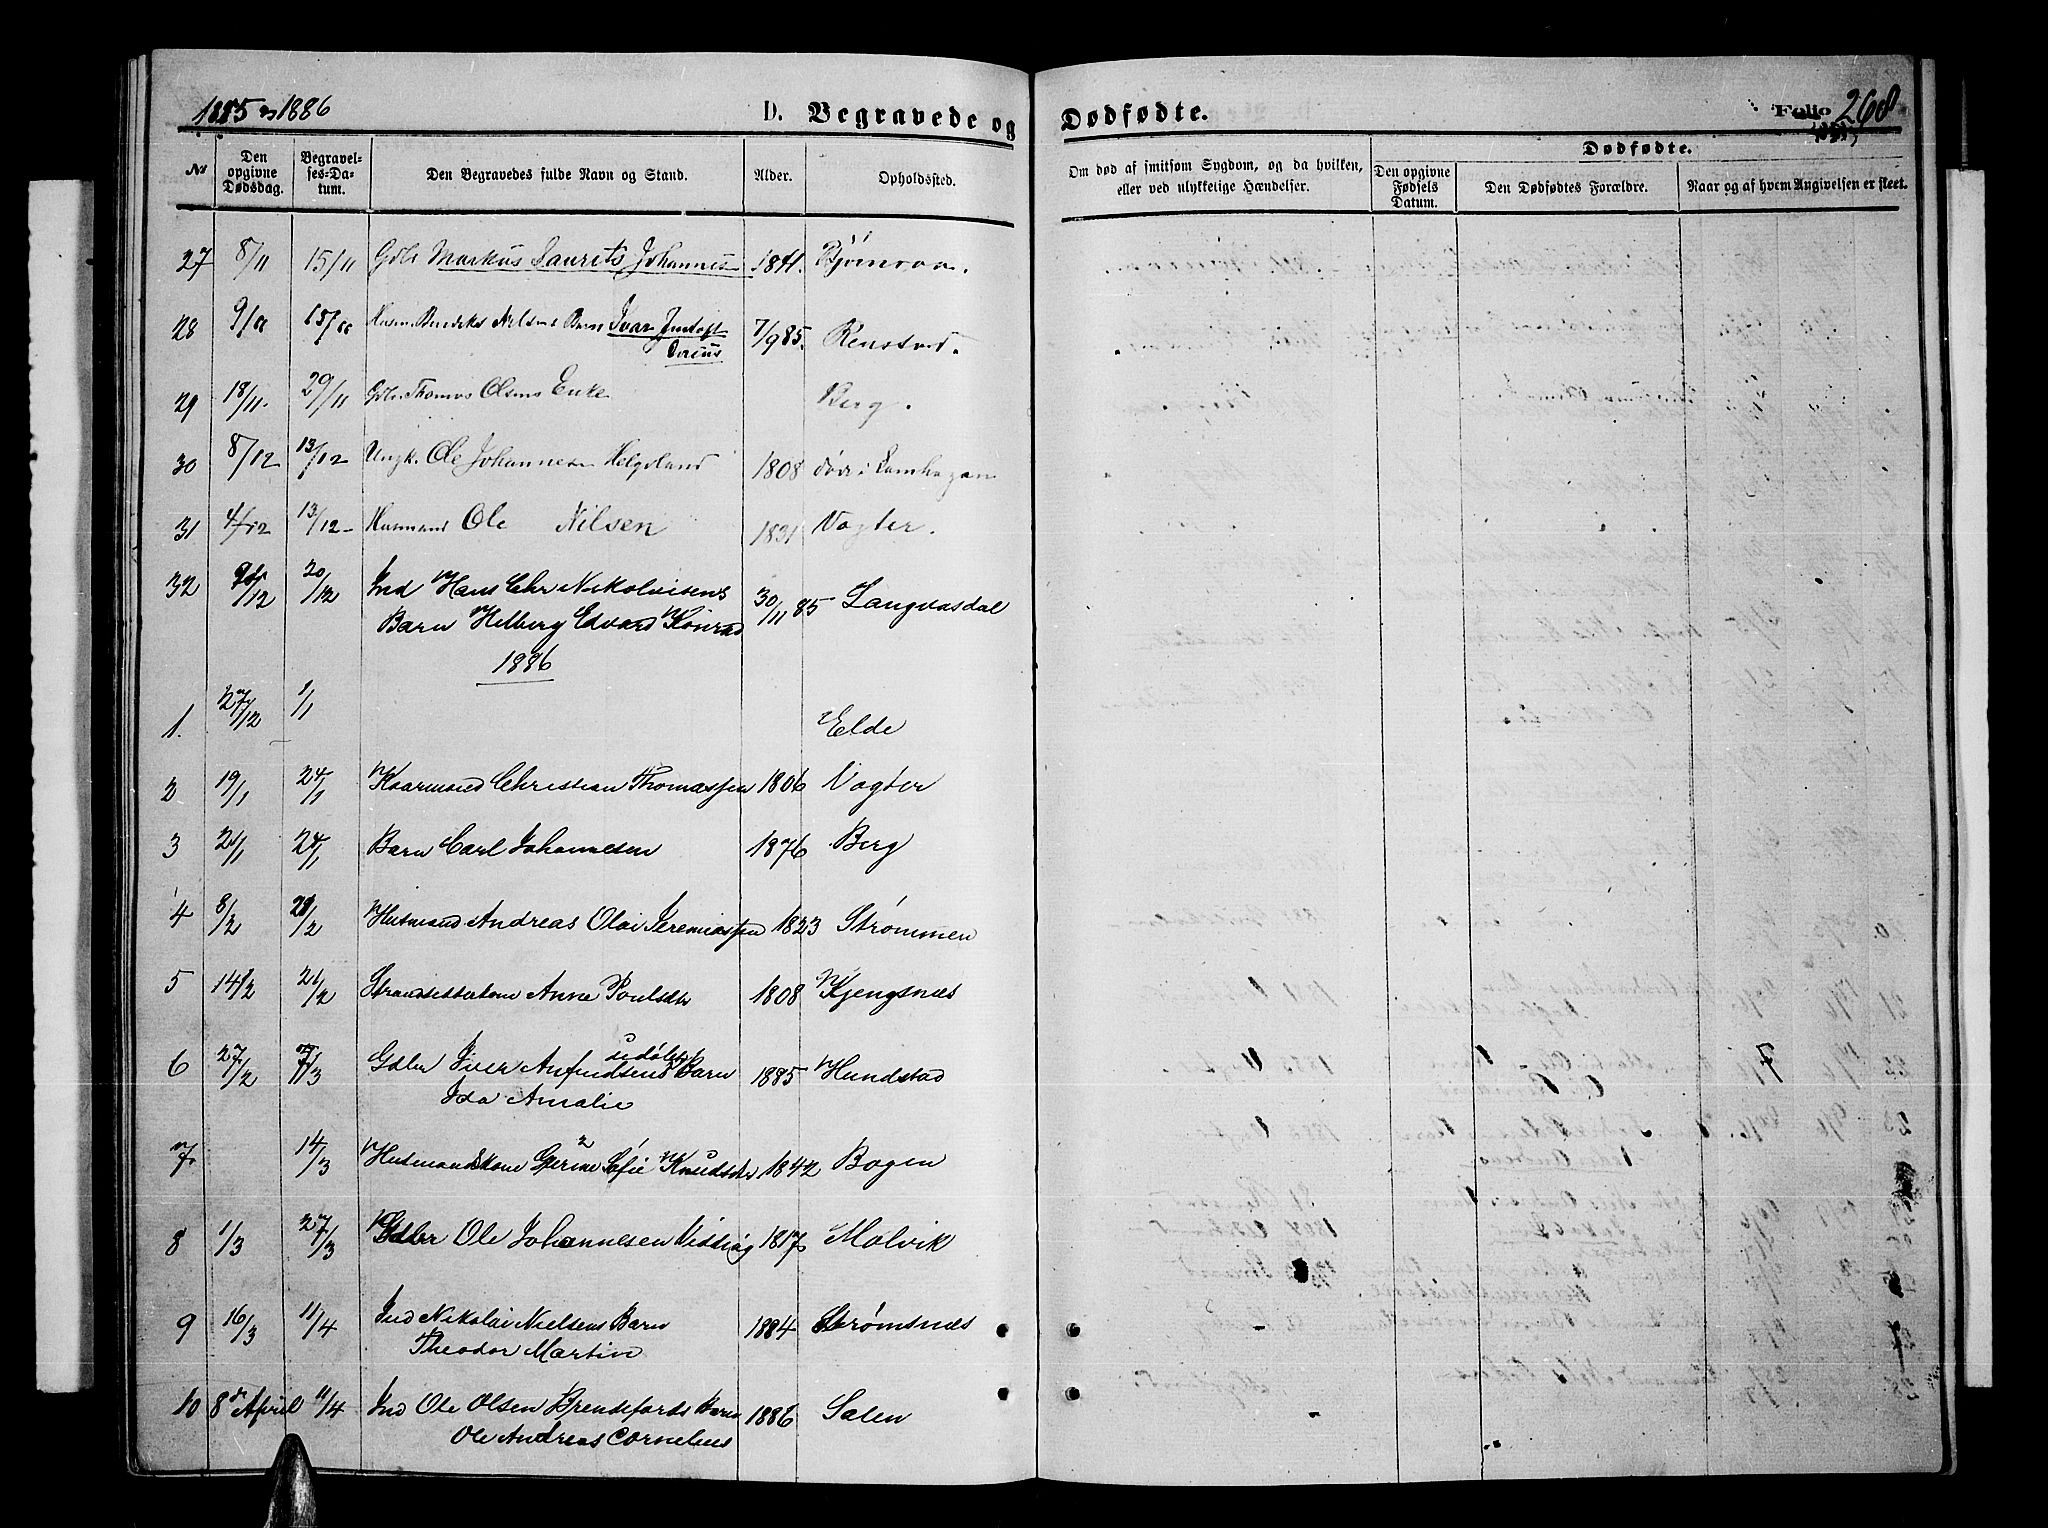 1885 og 1886
D. Begravede og Dødfødte.
Folio 268
No
Den opgivne Dødsdag.
Begravelses-Datum.
Den Begravedes fulde Navn og Stand.
Alder.
Opholdssted.
Om død af smitsom Sygdom, og da hvilken, eller ved ulykkelige Hændelser.
Dødfødte.
Den opgivne Fødsels Datum.
Den Dødfødtes Forældre.
Naar og af hvem Angivelsen er skeet.
27 8/11 15/11 Gdbr Markus Laurits Johannes 1841.
28 9/11 15/11 Husm Nilsens Barn Ivar 7/9 85. Renstad.
29 18/11. 29/11 Gdbr Thomas Olsens Enke Berg.
30 8/12 13/12 Ungk. Ole Johannesen Helgeland 1808 døde i
31 4/12 13/12 Husmand Ole Nilsen 1831 Vogter.
32 20/12 Ind Hans Chr Nikolaisens 30/11 85 Langvasdal
Barn Hilberg Edvard Konrad
1886
1. 27/12 1/1 Elde
2 19/1 24/1 Kaarmand Christian Thomassen 1806 Vogter
3 21/1 24/1 Barn Carl Johannesen 1876 Berg
4 8/2 21/2 Husmand Andreas Olai Jeremiassen 1823 Strømmen
5 14/2 21/2 Anne Poulsdtr 1808 Kjengsnæs
6 27/2 7/3 Gdbr Iver Anfindsens udøbt Barn 1885 Hundstad
Ida Amalie
7 14/3 Husmandskone Sofie Knudsdtr 1842 Bogen
8 1/3 27/3 Gdbr Ole Johannesen 1817 Molvik
9 16/3 11/4 Ind Nikolai Nielsens Barn 1884 Strømsnæs
Theodor Martin
10 8de April 11/4 Ind Ole Olsen Brendefords Barn 1886 Salen
Ole Andreas Cornelius